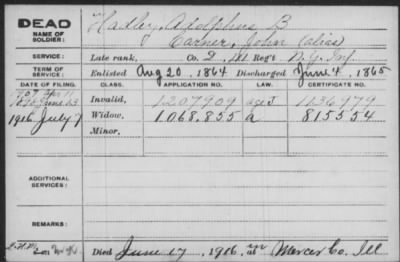 DEAD
NAME OF SOLDIER:
Hadley, Adolphus B
Carner, John (alias)
SERVICE:
Late rank, Co. D, 141 Reg't N.Y. Inf.
TERM OF SERVICE:
Enlisted Aug 20, 1864 Discharged June 4, 1865
DATE OF FILING. CLASS. APPLICATION NO. LAW. CERTIFICATE NO.
Invalid, 1207909 1136479
1916 July 7 Widow, 1.068.855 a 815554
Minor,
ADDITIONAL SERVICES:
REMARKS:
Died June 17, 1916, in Mercer Co. Ill